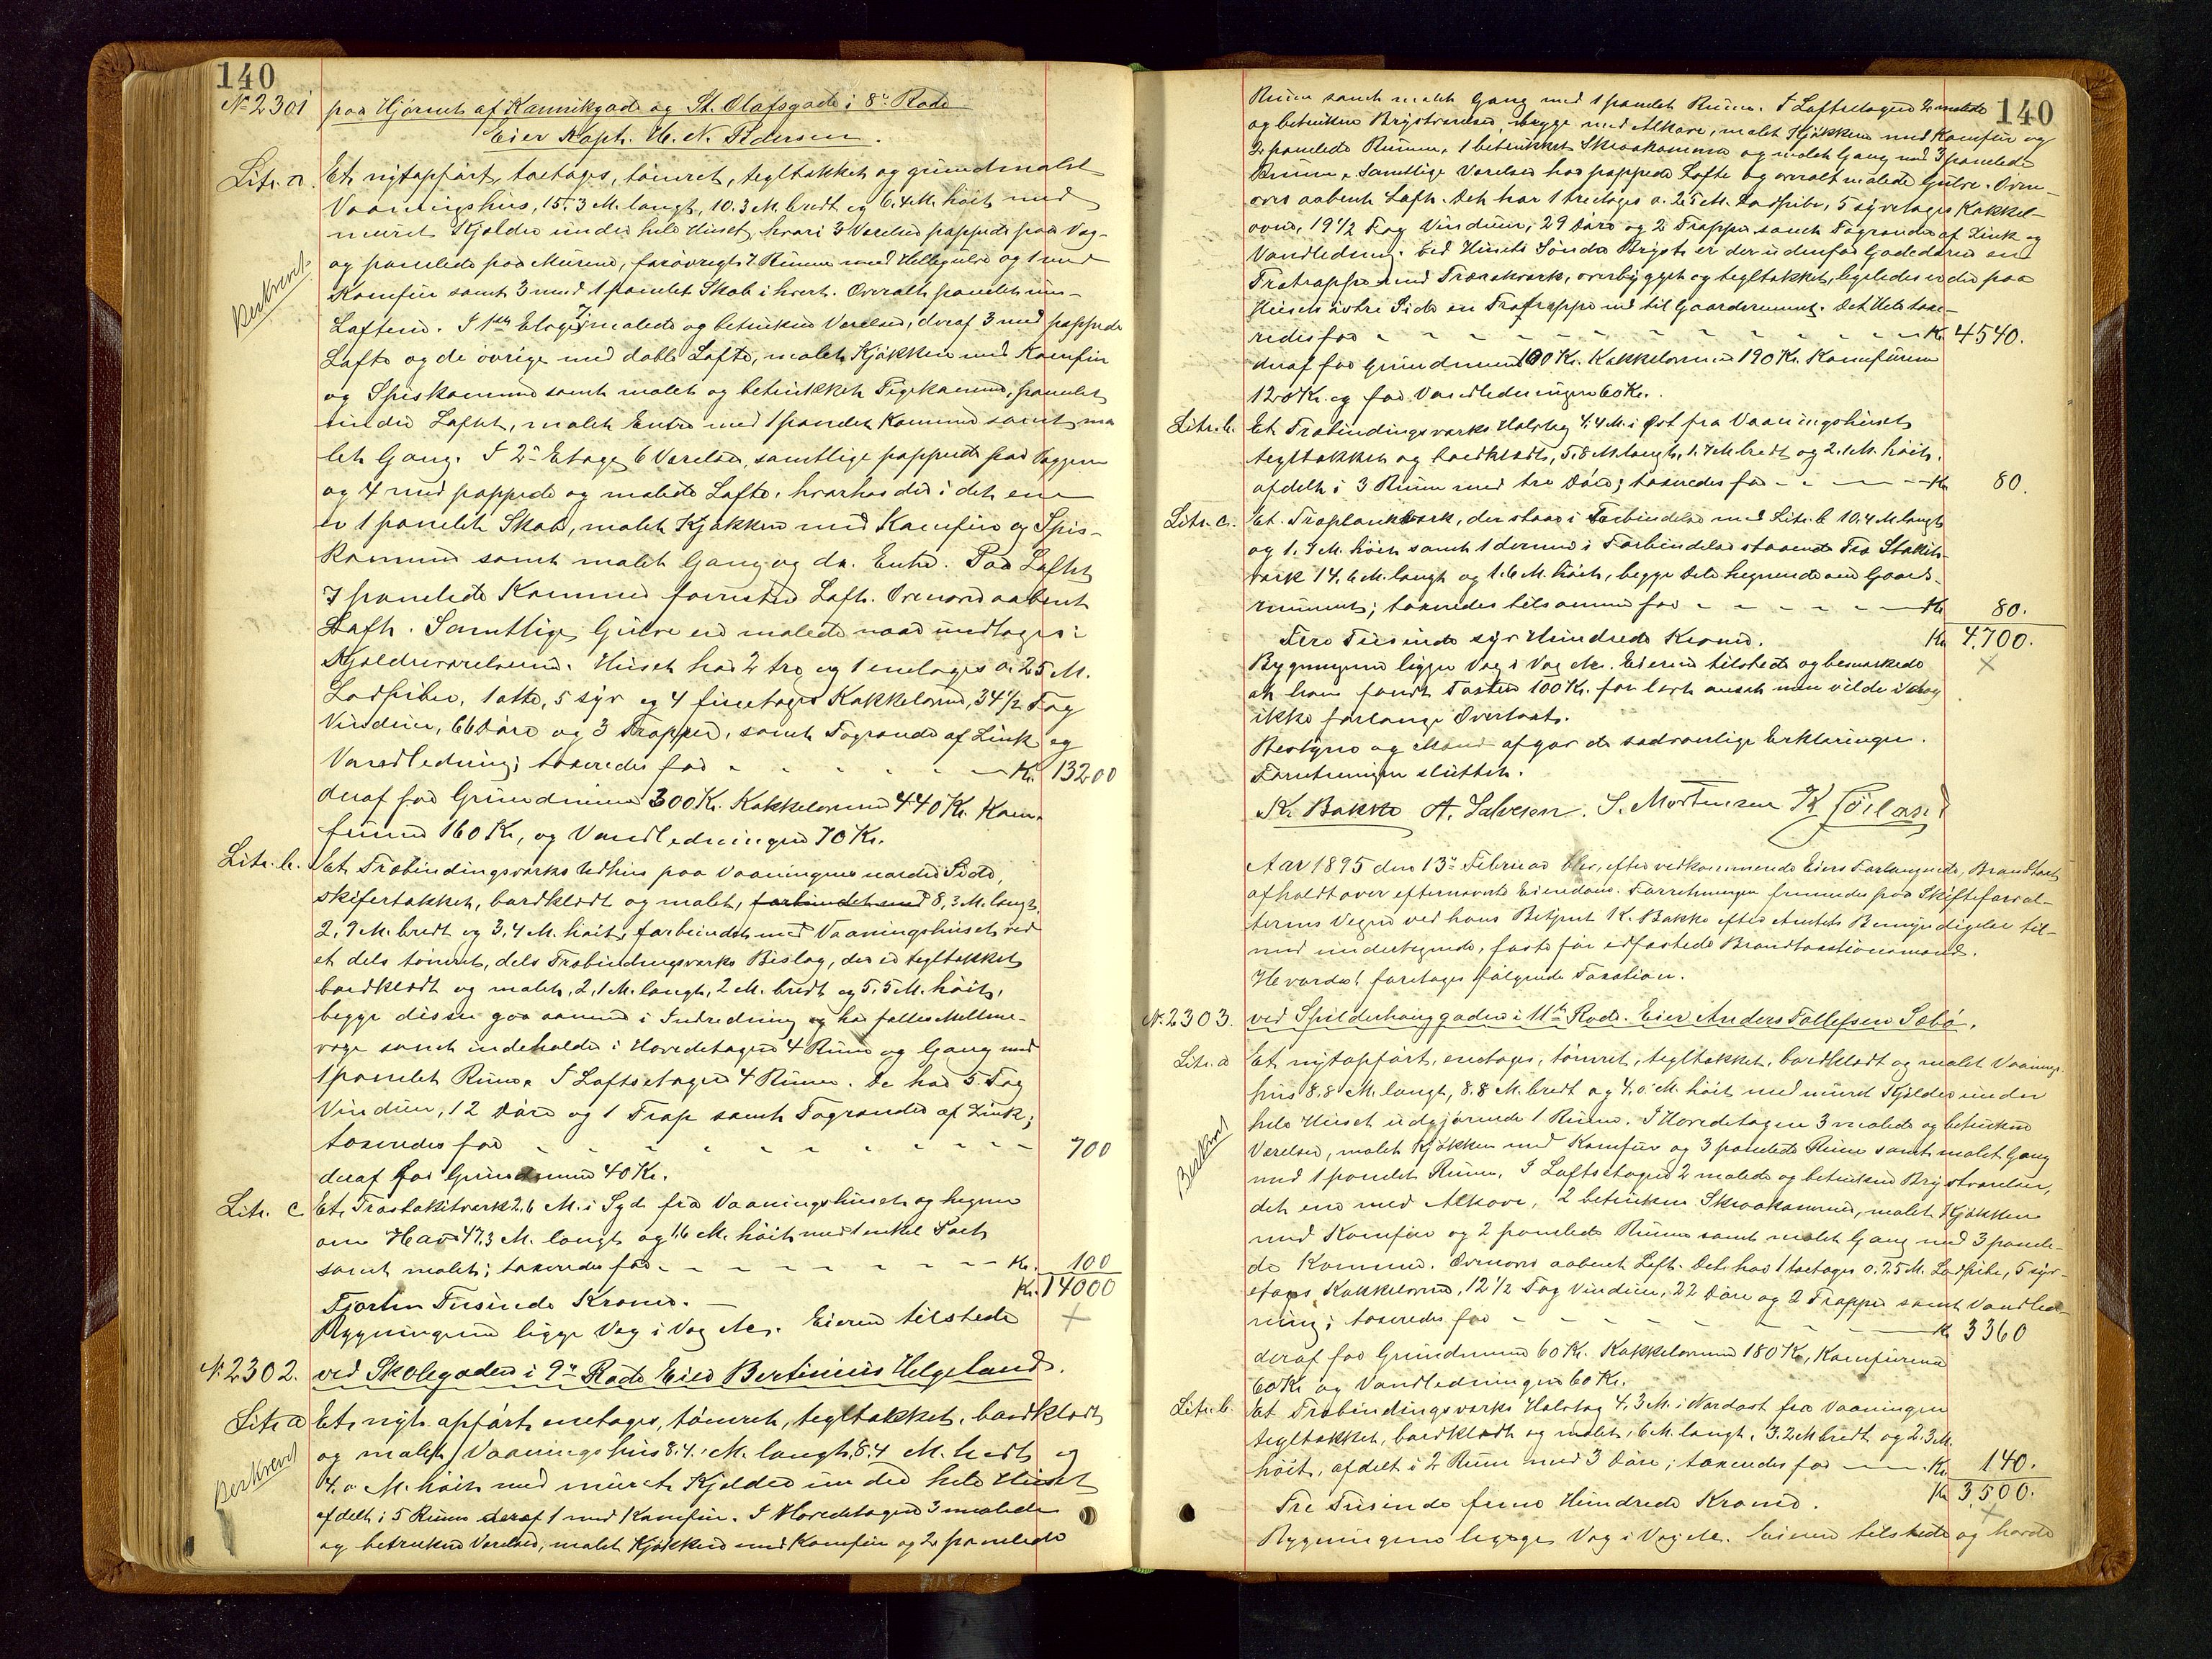 140
No 2301 paa Hjørnet af Kannikgade og St. Olafsgade i 8de Rode
Eier Kapt. H. N. Pedersen.
Litr. a. Et nyt opført, toetages, tømret, tegltækket og grundmalet
Vaaningshus, 15.3 M. langt, 10.3 M. bredt og 6.4 M. høit med
muret Kjelder under hele Huset, hvori 3 Værelser pappede paa Væg-
og panelede paa Murene, forøvrigt 7 Rumme med Hellegulve og 1 med
Komfur samt 3 med 1 panelet Skab i hvert. Overalt panelet un-
Beskrevet
Loftene. I 1ste Etage 7 malede og betrukne Værelser, deraf 3 med pappede
Lofte og de øvrige med doble Lofte, malet Kjøkken med Komfur
og Spiskammer samt malet og betrukket Pigekammer, panelet
under Loftet, malet Entre med 1 panelet Kammer samt ma
let Gang. I 2den Etage 6 Værelser, samtlige pappede paa Væggene
og 4 med pappede og malede Lofte, hvorhos der i det ene
er 1 panelet Skab, malet Kjøkken med Komfur og Spis-
kammer samt malet Gang og do. Entre. Paa Loftet
7 panelede Kammer forresten Loft. Ovenover aabent
Loft. Samtlige Gulve er malede naar undtages:
Kjelderværelserne. Huset har 2 tre og 1 enetages a. 25 M.
Ladpiber, 1 otte, 5 syv og 4 fireetages Kakkelovne, 34 1/2 Fag
Vinduer, 66 Døre og 3 Trapper, samt Tagrender af Zink og
Vandledning; taxeredes for - - - - - - Kr. 13200
deraf for Grundmuren 300 Kr. Kakkelovnene 440 Kr. Kom-
furene 160 Kr, og Vandledningen 70 Kr.
Litr. b. Et Træbindingsværks Udhus paa Vaaningens nordre Side,
skifertækket, bordklædt og malet, forbindet med 8,3 M. langt,
2,9 M. bredt og 3,4 M. høit, forbindet med Vaaningshuset ved
et dels tømret, dels Træbindingsværks Bislag, der er tegltækket
bordklædt og malet, 2,1 M. langt, 2 M. bredt og 5.5 M. høit,
begge disse gaa sammen i Indredning og har fælles Mellem-
væge samt indeholder i Hovedetagen 4 Rum og Gang med
1 panelet Rum. I Loftsetagen 4 Rumme. De har 5 Fag
Vinduer, 12 Døre og 1 Trap samt Tagrender af Zink;
taxeredes for - - - - - - - - 700
deraf for Grundmuren 40 Kr.
Litr. c Et Træstakitværk 2.6 M. i Syd fra Vaaningshuset og hegner
om Have 47.3 M. langt og 1.6 M. høit med 1 enkel Port
samt malet; taxeredes for - - - - - - Kr. 100
Kr. 14000
Fjorten Tusinde Kroner. -
Bygningerne ligge Væg i Væg &c. Eieren tilstede +
No 2302. ved Skolegaden i 9de Rode Eier Bertinius Helgeland.
Litr. a Et nyt opført, enetages, tømret, tegltækket, bordklædt
og malet Vaaningshus 8.4. M. langt, 8.4 M. bredt og
Beskrevet
4.0 M. høit med muret Kjelder under hele Huset
afdelt i 5 Rum deraf 1 med Komfur. I Hovedetagen 3 malede
og betrukne Værelser, malet Kjøkken med Komfur og 2 panelede
140
Rum samt malet Gang med 1 panelet Rum. I Loftsetagen 2 malede
og betrukne Brystværelser, begge med Alkove, malet Kjøkken med Komfur og
2 panelede Rumme, 1 betrukket Skraakammer og malet Gang med 3 panelede
Rumme. Samtlige Værelser har pappede Lofte og overalt malede Gulve. Oven-
over aabent Loft. Det har 1 treetages a. 25 M. Ladpibe, 5 syvetages Kakkel-
ovne, 19 1/2 Fag Vinduer, 29 Døre og 2 Trapper samt Tagrender af Zink og
Vandledning. Ved Husets Søndre Bryst er der udenfor Gadedøren en
Trætrappe med Trærækværk, overbygget og tegltækket, ligeledes er der paa
Husets østre Side en Trætrappe ned til Gaardsrummet. Det Hele taxe-
redes for - - - - - - - - Kr. 4540.
deraf for Grundmuren 100 Kr. Kakkelovnene 190 Kr. Komfurene
120 Kr. og for Vandledningen 60 Kr.
Litr. b. Et Træbindingsværks Halvtag 4.4 M. i Øst fra Vaaningshuset
tegltækket og bordklædt, 5.8 M. langt, 1.7 M. bredt og 2.1 M. høit.
afdelt i 3 Rumme med tre Døre; taxeredes for - - - - Kr 80.
Litr. c. Et Træplankværk, der staar i Forbindelse med Litr. b 10.4 M. langt
og 1.9 M. høit samt 1 dermed i Forbindelse staaende Træ Stakit-
værk 14.6 M. langt og 1.6 M. høit, begge Dele hegnende om Gaards-
rummet; taxeredes tilsammen for - - - - - - Kr 80.
Fire Tusinde syv Hundrede Kroner. Kr. 4,700.
Bygningerne ligger Væg i Væg &c. Eieren tilstede og bemærkede +
at han fandt Taxten 100 Kr. for lavt ansat men vilde idag
ikke forlange Overtaxt.
Bestyrer og Mænd afgav de sædvanlige Erklæringer.
Forretningen sluttet.
K. Bakke A. Salvesen. S. Mortensen K Föiland
Aar 1895 den 13de Februar blev, efter vedkommende Eiers Forlangende, Brandtaxt
afholdt over efternævnte Eiendom. Forretningen fremmedes paa Skifteforval-
terens Vegne ved hans Betjent K. Bakke efter Amtets Bemyndigelse til-
med undertegnede, faste før edfæstede Brandtaxtionsmænd.
Hvorda foretages følgende Taxation.
No 2303. ved Spilderhauggaden i 11te Rode. Eier Anders Tollefsen Sæbø.
Litr. a Et nyt opført, enetages, tømret, tegltækket, bordklædt og malet Vaanings-
hus 8.8 M. langt, 8.8 M. bredt og 4.0 M. høit med muret Kjelder under
hele Huset udgjørende 1 Rum. I Hovedetagen 3 malede og betrukne
Beskrevet
Værelser, malet Kjøkken med Komfur og 3 panelede Rum samt malet Gang
med 1 panelet Rum. I Loftsetagen 2 malede og betrukne Brystværelser,
det ene med Alkove, 2 betrukne Skraakammer, malet Kjøkken
med Komfur og 2 panelede Rumme samt malet Gang med 3 panele-
de Kammer. Ovenover aabent Loft. Det har 1 toetages a. 25 M. Ladpibe, 5 syv-
etages Kakkelovne, 12 1/2 Fag Vinduer, 22 Døre og 2 Trapper samt Vandled-
ning; taxeredes for - - - - - - Kr 3360
deraf for Grundmuren 60 Kr. Kakkelovnene 180 Kr, Komfurene
60 Kr og Vandledningen 60 Kr.
Litr. b. Et Træbindingsværks Halvtag 4,3 M. i Nordost fra Vaaningen
tegltækket, bordklædt og malet, 6 M. langt, 3.2 M bredt og 2.3 M.
høit, afdelt i 2 Rum med 3 Døre; taxeredes for - - - Kr. 140.
Tre Tusinde fem Hundrede Kroner. Kr 3,500.
Bygningerne ligger Væg i Væg &c. Eieren tilstede og havde